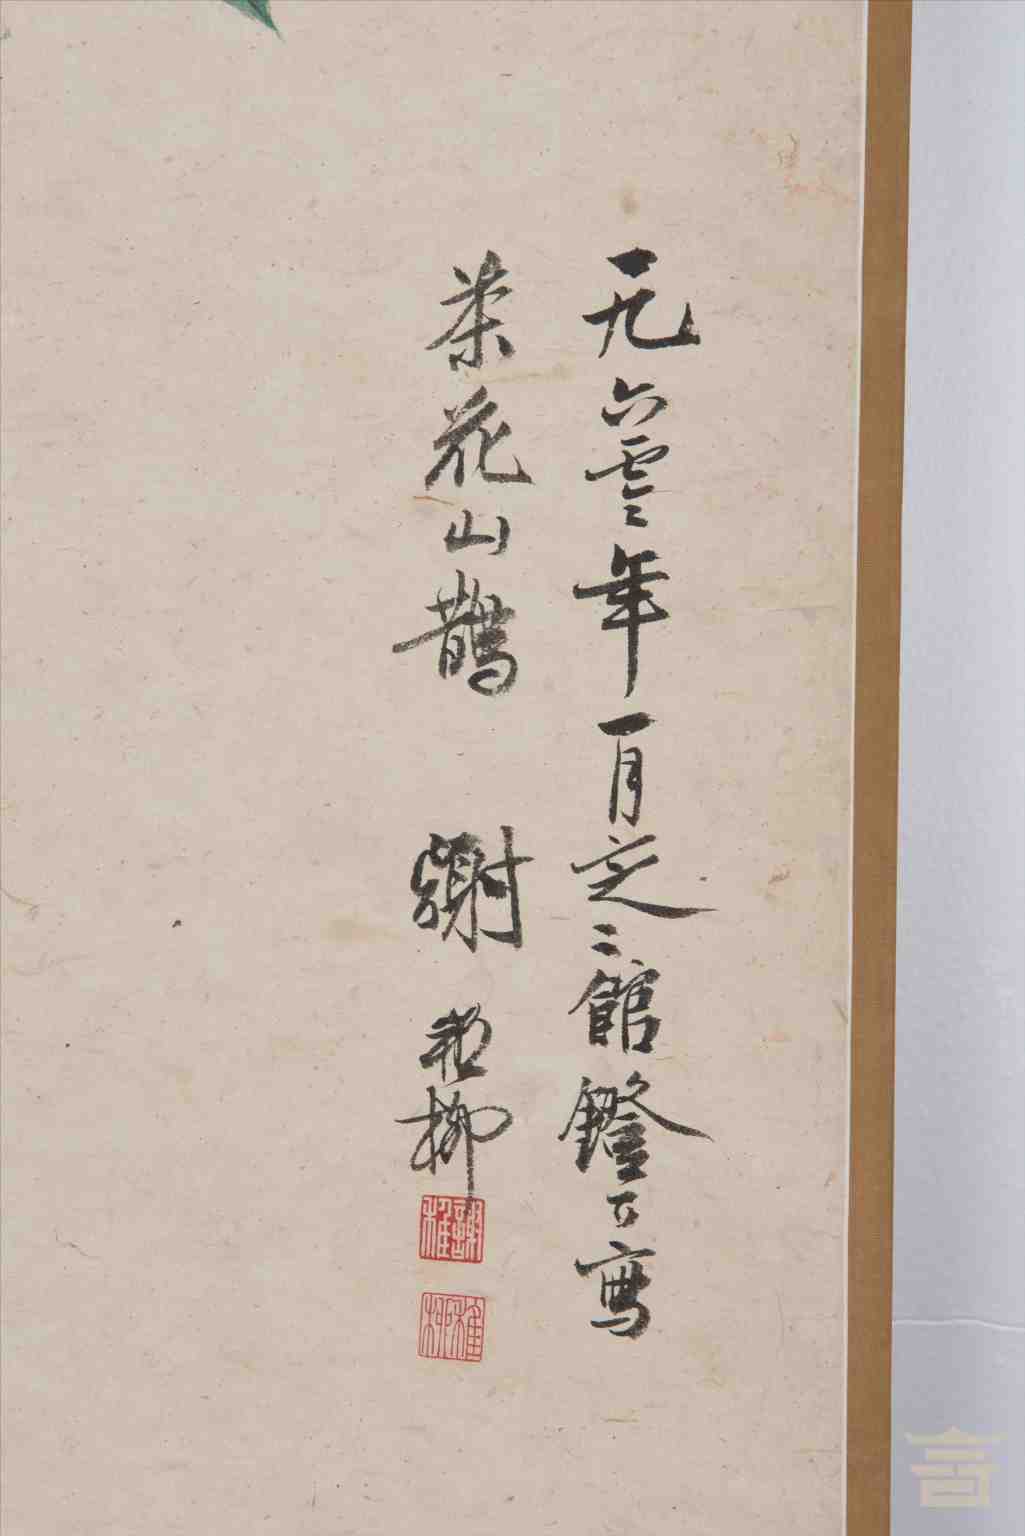 一九六零年一月定〻館鐙下寫
茶花山鵲 謝稚柳
謝稚
稚柳